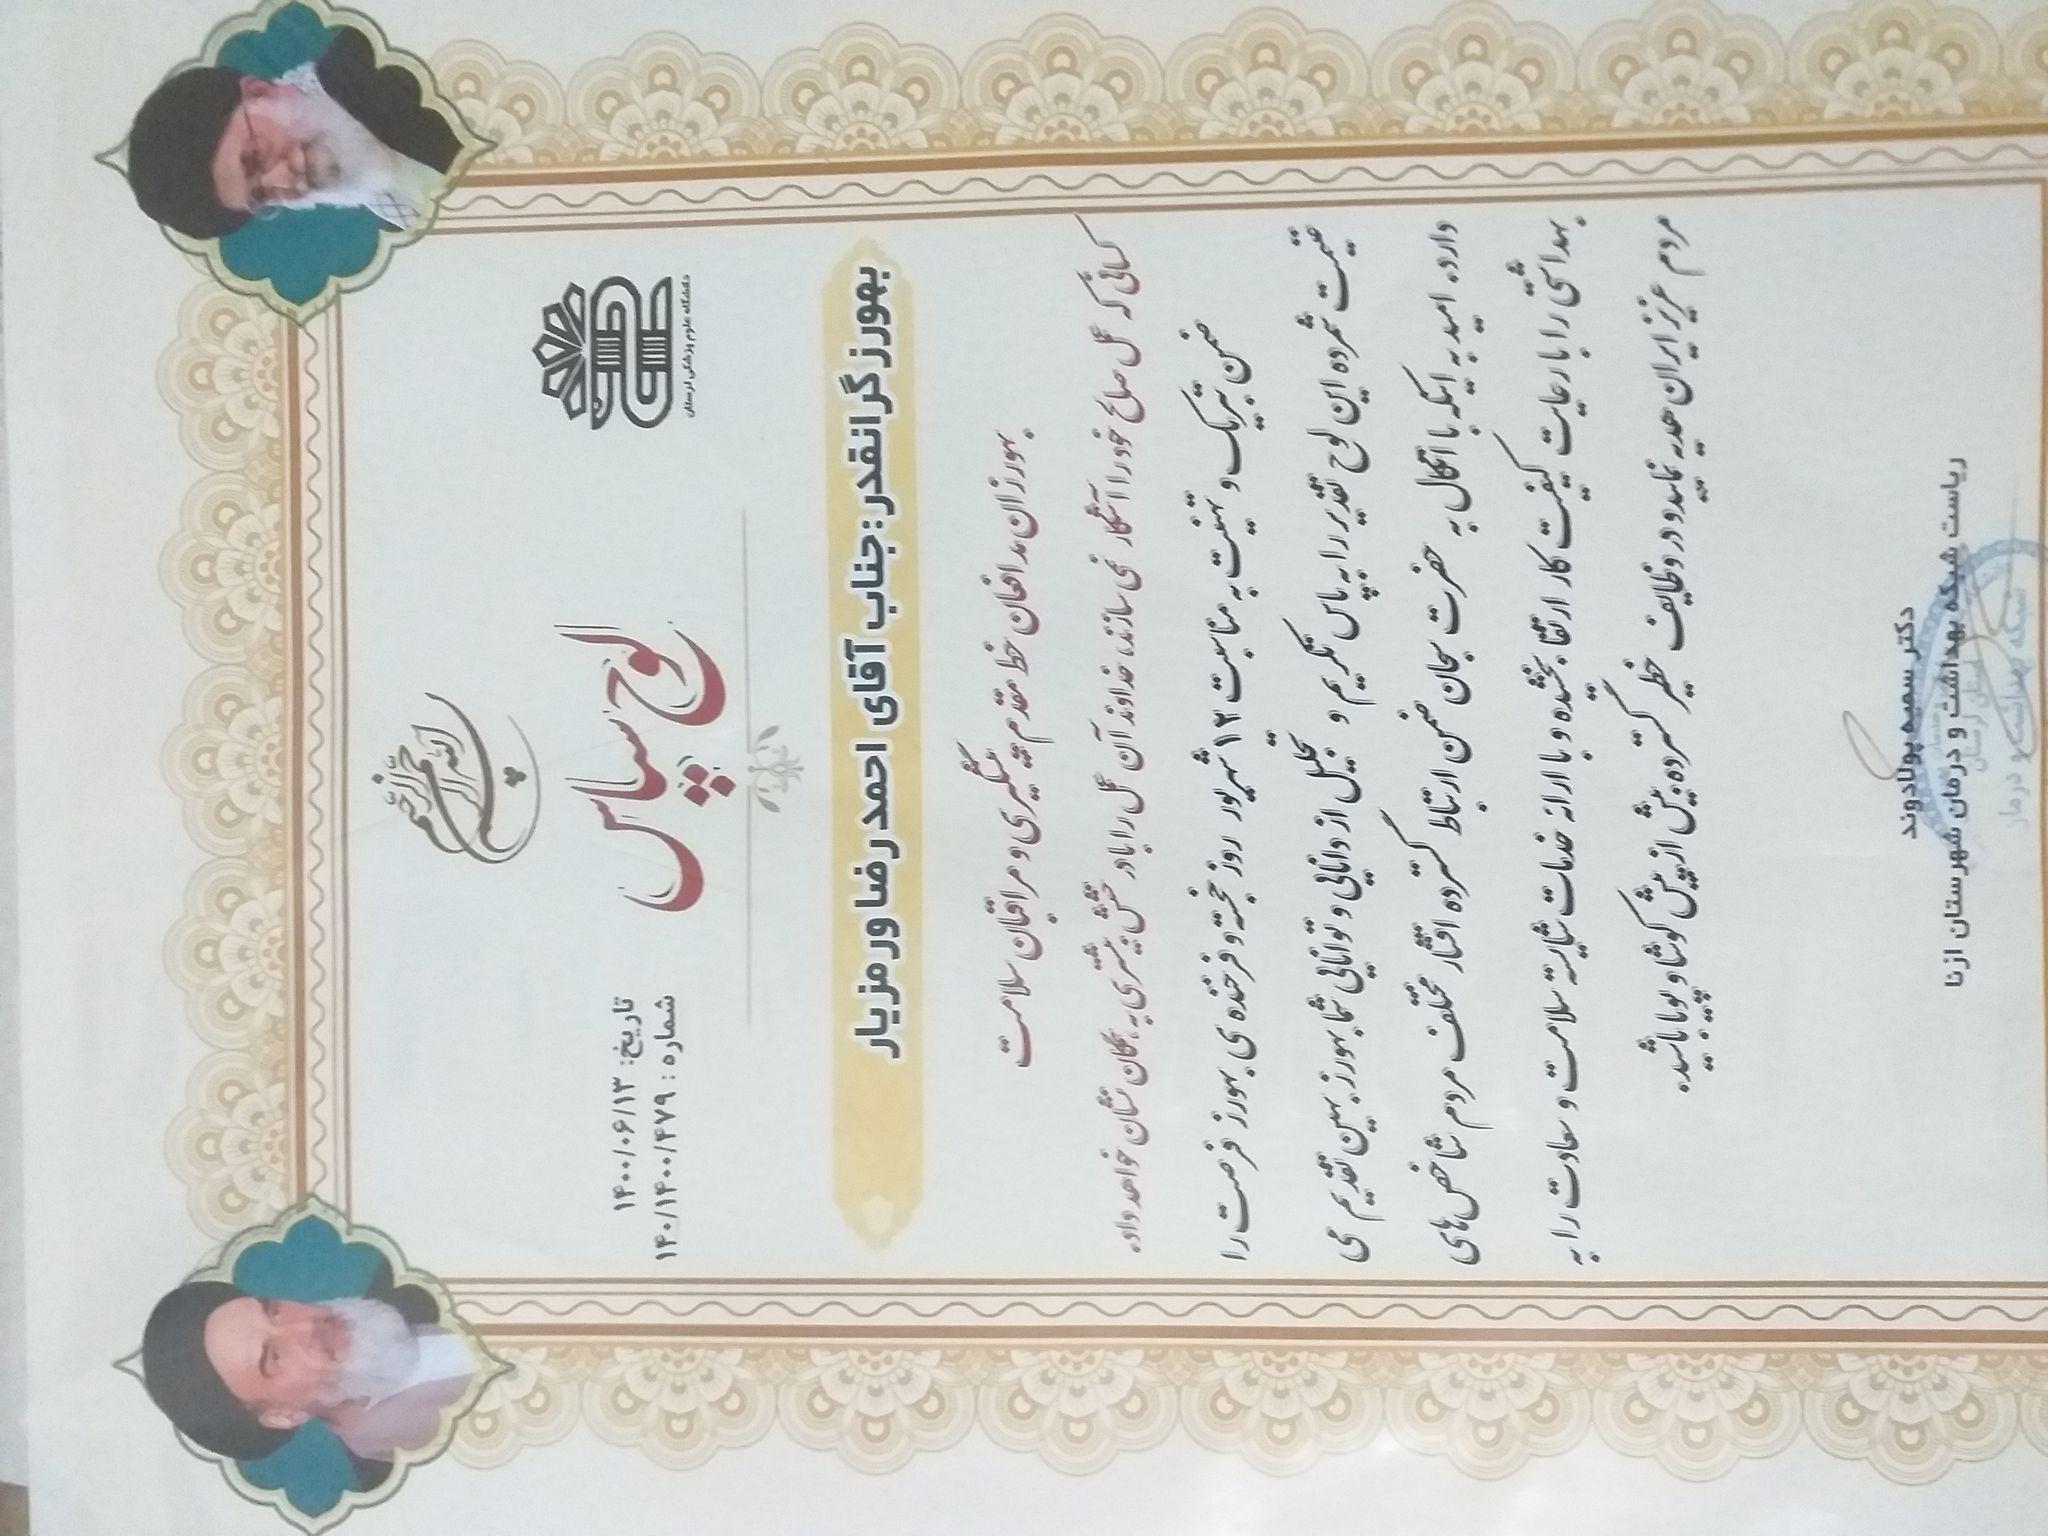 بسم الله الرحمن الرحیم
دانشگاه علوم پزشکی لرستان
لوح سپاس
تاریخ: ۱۴۰۰/۰۶/۱۳
شماره : ۱۴۰/۱۴۰۰/۴۷۹
بهورز گرانقدر: جناب آقای احمد رضا ورمزیار
بهورزان مدافعان خط مقدم پیشگیری و مراقبان سلامت
کسانی که عمل صالح خود را آشکار نمی سازند، خداوند آن عمل را با درخشش بیشتری به همگان نشان خواهد داد.
ضمن تبریک و تهنیت به مناسبت ۱۲ شهریور روز خجسته و فرخنده ی بهورز فرصت را
غنیمت شمرده این لوح تقدیر را به پاس تکریم و تجلیل از دانایی و توانایی شما بهورز بهین تقدیم می
دارد. امید به اینکه با اتکال به حضرت سبحان ضمن ارتباط گسترده اقشار مختلف مردم شاخص های
بهداشتی را با رعایت کیفیت کار ارتقا بخشیده و با ارائه خدمات شایسته سلامت و سعادت را به
مردم عزیز ایران هدیه نمایید و در وظایف خطیر گسترده بیش از پیش کوشا و پویا باشید.
دکتر سمیه پولادوند
ریاست شبکه بهداشت و درمان شهرستان ازنا